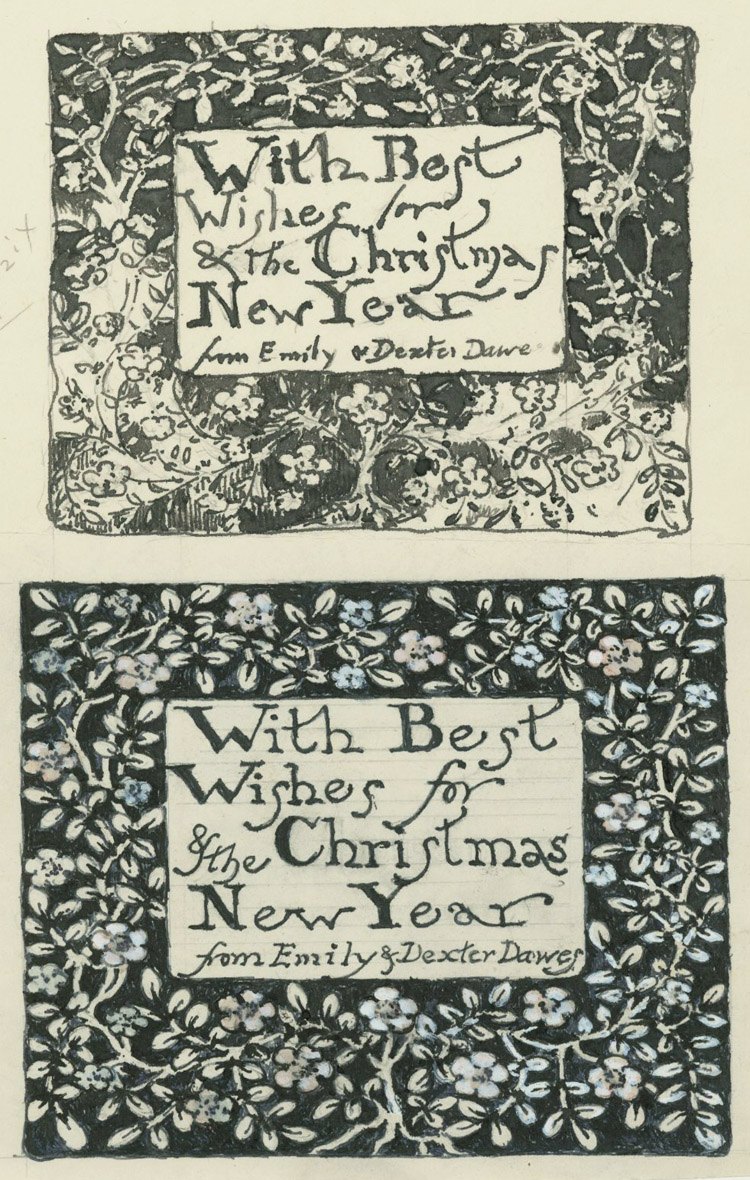 With Best
Wishes for
& the Christmas
New Year
from Emily & Dexter Dawe
With Best
Wishes for
& the Christmas
New Year
from Emily & Dexter Dawes